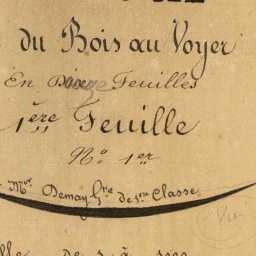 du Bois au Voyer
En Feuilles
1ère Feuille
N.° 1er
Mr Demay Gre de 1ere Classe
de 1 à